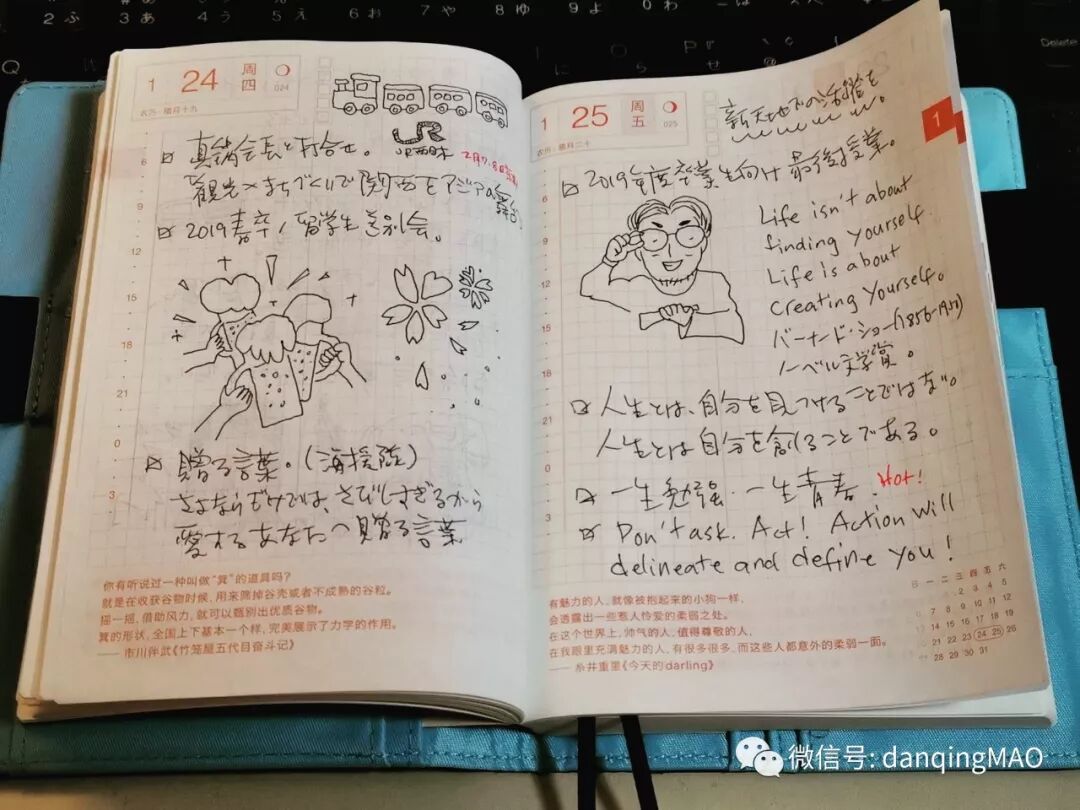 1 24 周四
024
农历·腊月十九
JR
JR西日本
真鍋会長と打合せ。
2月7.8日
観光×まちづくりで関西をアジアの舞台
2019春卒/留学生送別会。
贈る言葉。(海援隊)
さよならだけでは、さびしすぎるから
愛するあなたへ贈る言葉
6
9
12
15
18
21
0
3
你有听说过一种叫做“箕”的道具吗?
就是在收获谷物时候,用来筛掉谷壳或者不成熟的谷粒。
摇一摇,借助风力,就可以甄别出优质谷物。
箕的形状,全国上下基本一个样,完美展示了力学的作用。
—— 市川伴武《竹笼屋五代目奋斗记》
1 25 周五
025
农历·腊月二十
新天地での活躍を
1
2019年度卒業生向け最終授業。
Life isn't about
finding yourself
Life is about
Creating Yourself.
バーナード・ショー(1856-1950)
ノーベル文学賞。
人生とは、自分を見つけることではない。
人生とは自分を創ることである。
一生勉强.一生青春. Hot!
Don't ask. Act! Action will
delineate and define you!
6
9
12
15
18
21
0
3
有魅力的人,就像被抱起来的小狗一样,
会透露出一些惹人怜爱的柔弱之处。
在这个世界上,帅气的人,值得尊敬的人,
在我眼里充满魅力的人,有很多很多,而这些人都意外的柔弱一面。
—— 糸井重里《今天的darling》
日 一 二 三 四 五 六
1 2 3 4 5
6 7 8 9 10 11 12
13 14 15 16 17 18 19
20 21 22 23 24 25 26
27 28 29 30 31
Delete
微信号: danqingMAO